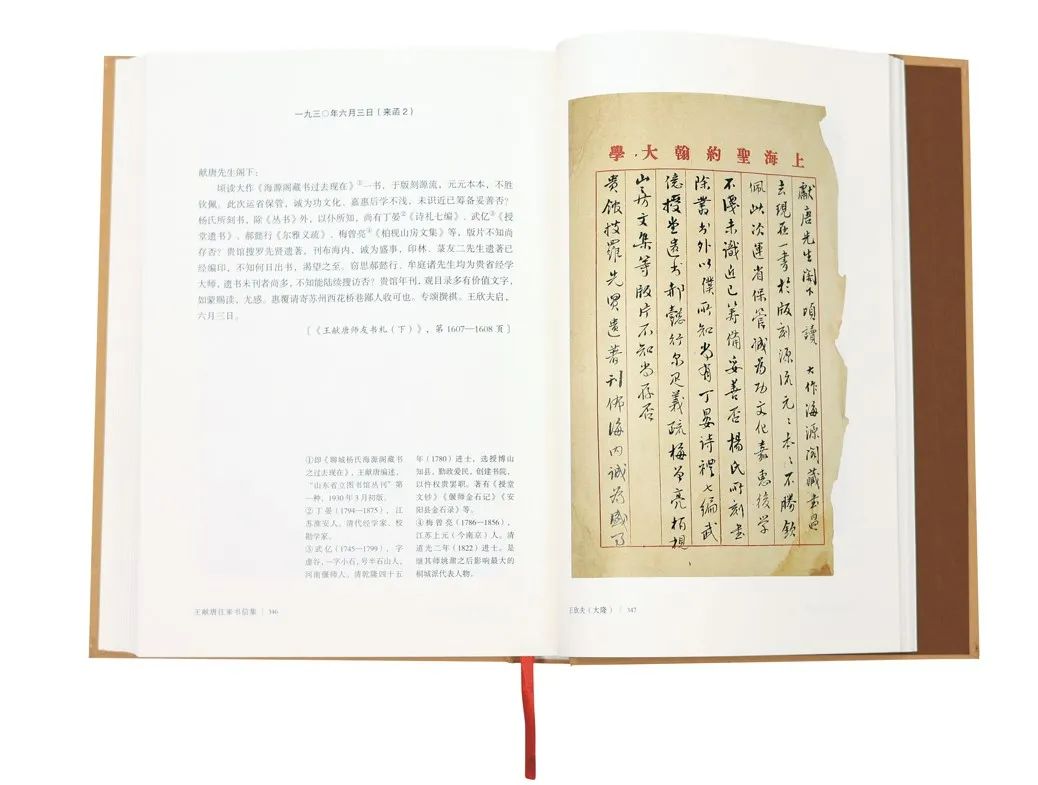 一九三〇年六月三日（来函2）
献唐先生阁下：
顷读大作《海源阁藏书过去现在》①一书，于版刻源流，元元本本，不胜
钦佩。此次运省保管，诚为功文化、嘉惠后学不浅，未识近已筹备妥善否？
杨氏所刻书，除《丛书》外，以仆所知，尚有丁晏②《诗礼七编》、武亿③《授
堂遗书》、郝懿行《尔雅义疏》、梅曾亮④《柏枧山房文集》等，版片不知尚
存否？贵馆搜罗先贤遗著，刊布海内，诚为盛事，印林、菉友二先生遗著已
经编印，不知何日出书，渴望之至。窃思郝懿行、牟庭诸先生均为贵省经学
大师，遗书未刊者尚多，不知能陆续搜访否？贵馆年刊，观目录多有价值文字，
如蒙赐读，尤感。惠覆请寄苏州西花桥巷鄙人收可也。专颂撰祺。王欣夫启，
六月三日。
［《王献唐师友书札（下）》，第1607—1608页］
①即《聊城杨氏海源阁藏书
之过去现在》，王献唐编述，
“山东省立图书馆丛刊”第
一种，1930年3月初版。
②丁晏（1794—1875），江
苏淮安人。清代经学家、校
勘学家。
③武亿（1745—1799），字
虚谷，一字小石，号半石山人，
河南偃师人。清乾隆四十五
年（1780）进士，选授博山
知县，勤政爱民，创建书院，
以忤权贵罢职。著有《授堂
文钞》《偃师金石记》《安
阳县金石录》等。
④梅曾亮（1786—1856），
江苏上元（今南京）人。清
道光二年（1822）进士。是
继其师姚鼐之后影响最大的
桐城派代表人物。
王献唐往来书信集 | 346
上海聖約翰大學
獻唐先生閣下頃讀 大作海源閣藏書過
去現在一書於版刻源流元〻本〻不勝欽
佩此次運省保管誠為功文化嘉惠後學
不淺未識近已籌備妥善否楊氏所刻書
除叢書外以僕所知尚有丁晏詩禮七編武
億授堂遺書郝懿行尔疋義疏梅曾亮柏梘
山房文集等版片不知尚存否
貴館搜羅先賢遺著刊佈海内誠為盛事
王欣夫（大隆） | 347